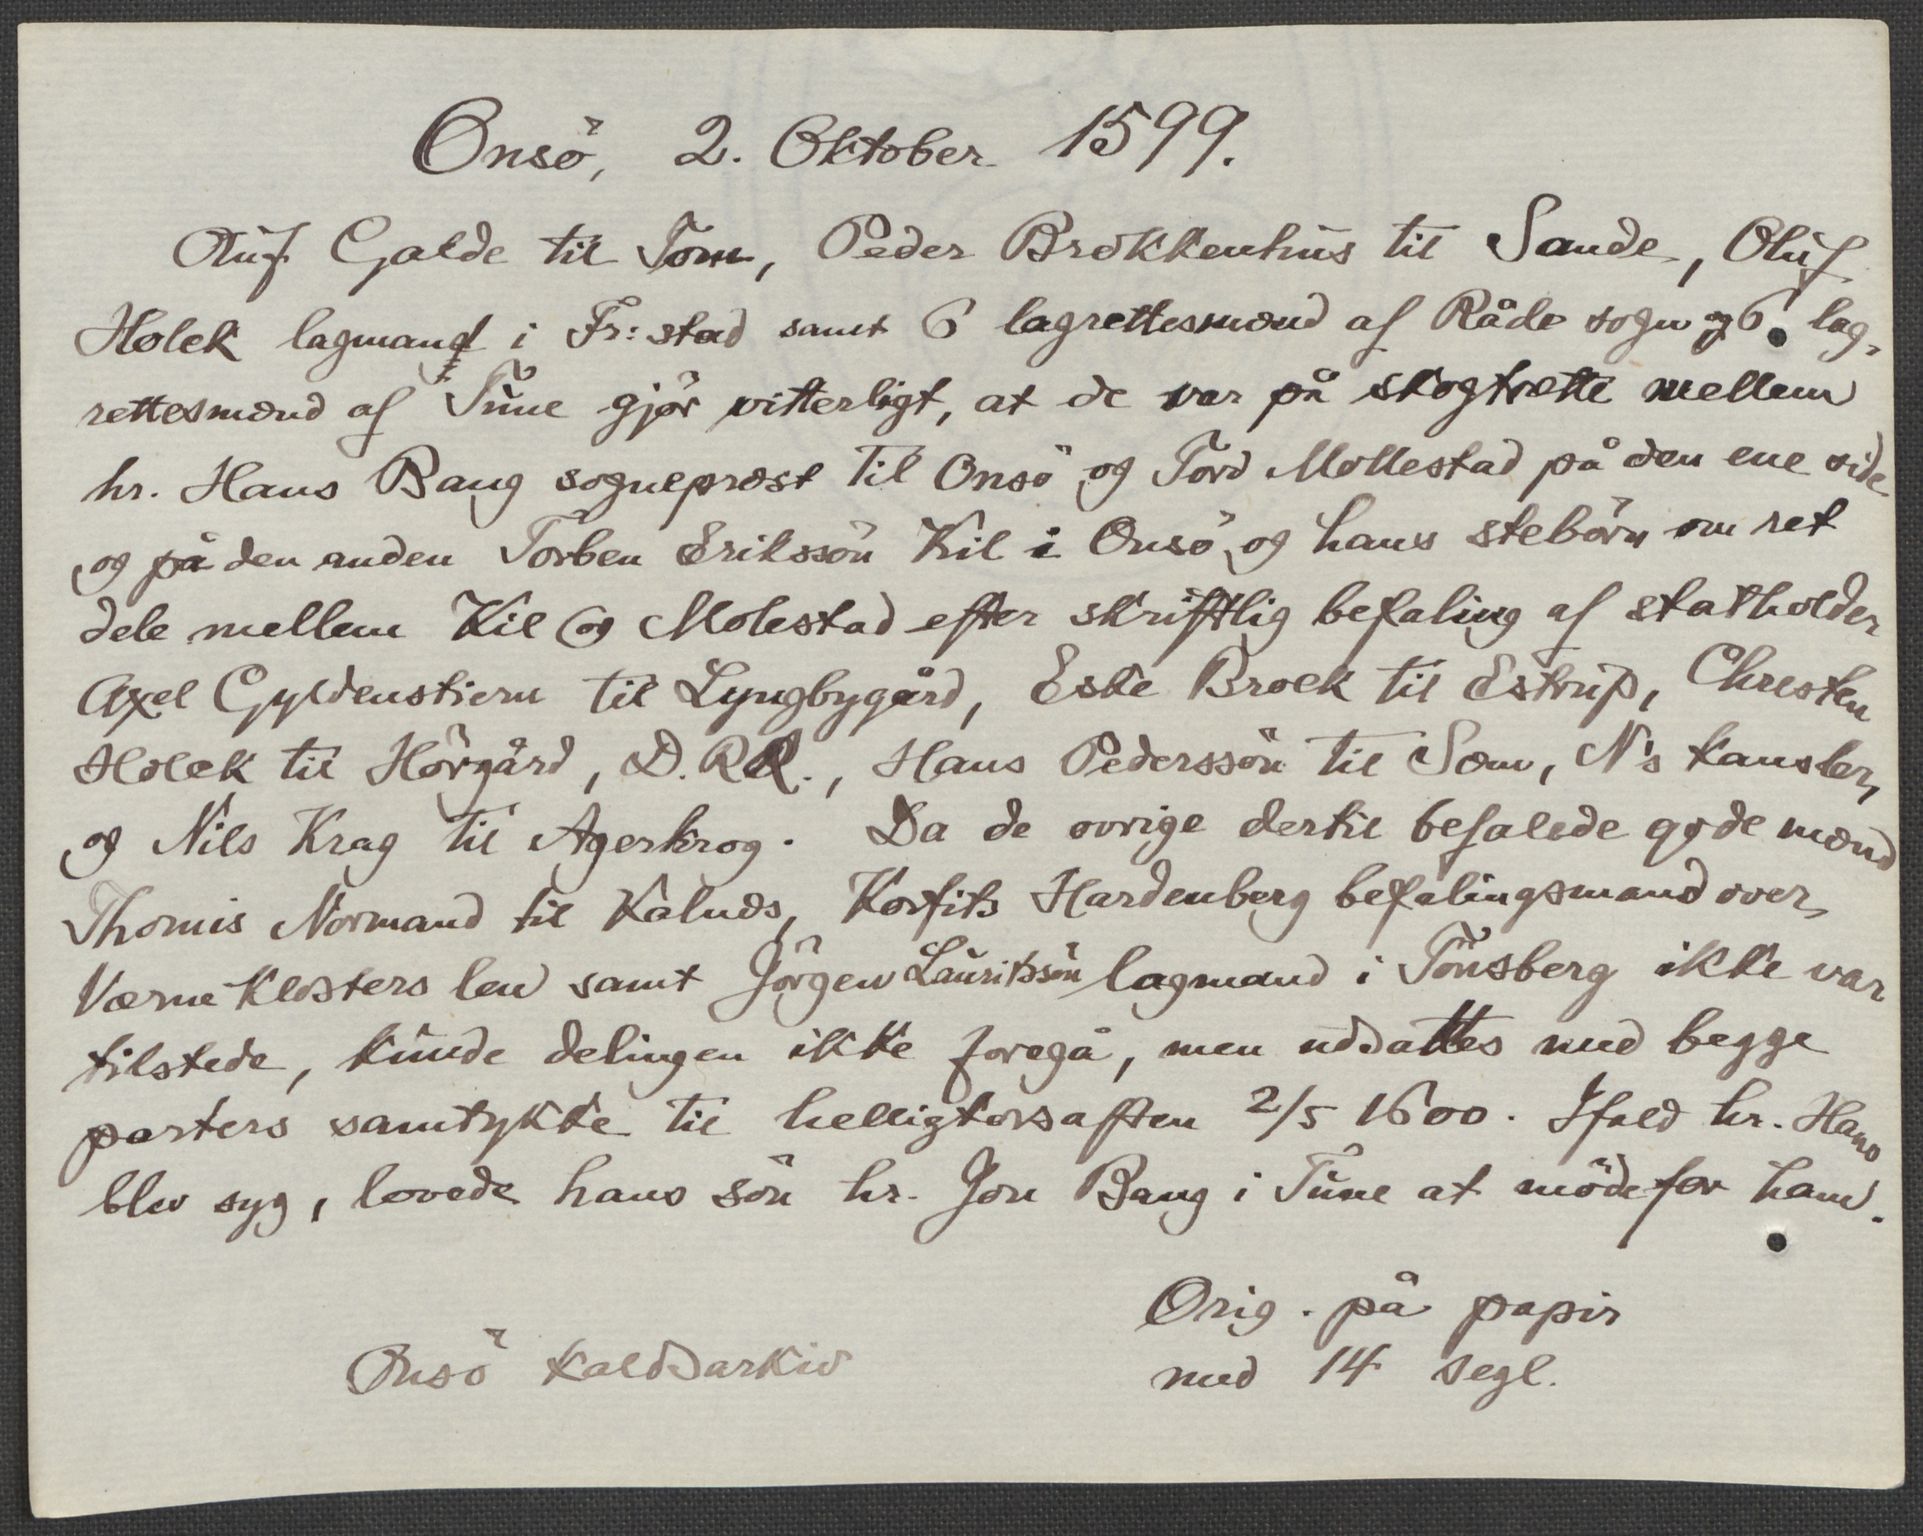 Onsö, 2. Oktober 1599.
Oluf Galde til Tom, Peder Brokkenhus til Sande, Oluf
Holck lagmand i Fr:stad samt 6 lagrettesmænd af Råde sogn og 6 lag-
rettesmænd af Tune gjör vitterligt, at de var på skogtrætte mellem
hr. Hans Bang sogneprest til Onsö og Tord Mollestad på den ene side
og på den anden Torben Erikssön Kil i Onsö og hans stebörn om ret
dele mellem Kil og Molestad efter skriftlig befaling af statholder
Axel Gyldenstiern til Lyngbygård, Eske Brock til Estrup, Chresten
Holck til Hörgård, D. R R., Hans Pederssön til Sem, N's kansler,
og Nils Krag til Agerkrog. Da de ovrige dertil befalede gode mænd
Thomis Normand til Kalnds, Korfits Hardenberg befalingsmand over
Værne Klosters len samt Jörgen Lauritssön lagmand i Tönsberg ikke var
tilstede, kunde delingen ikke foregå, men udsattes med begge
parters samtykke til helligtorsaften 2/5 1600. Ifald hr. Hans
blev syg, lovede hans sön hr. Jon Bang i Tune at möde for ham.
Orig. på papir
med 14 segl.
Onsö kaldsarkiv